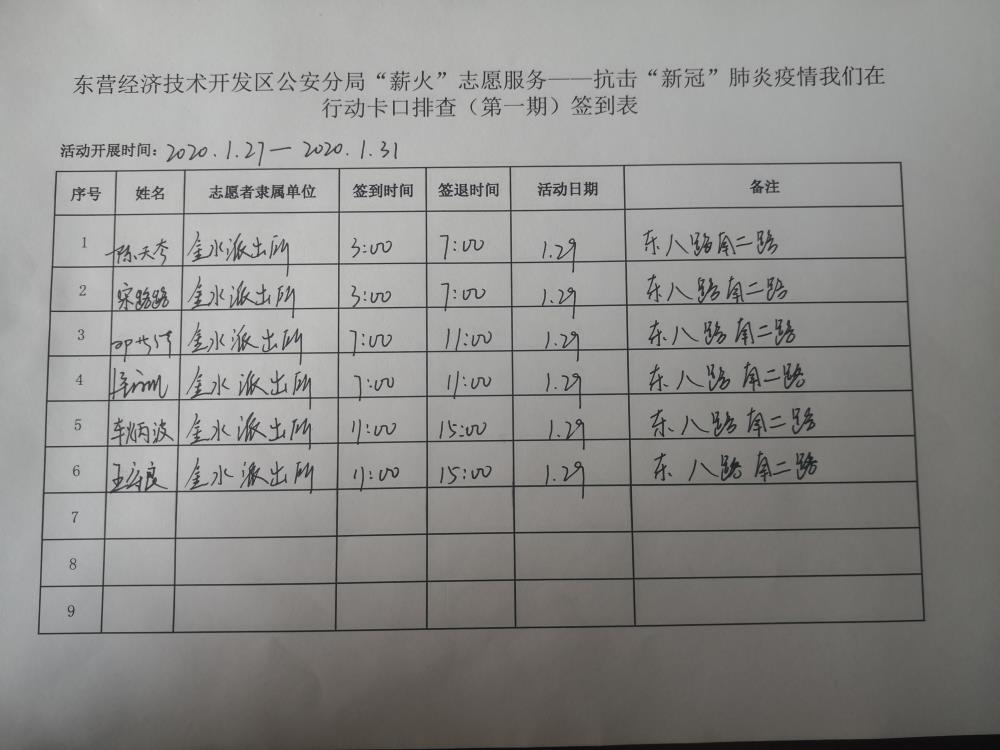 东营经济技术开发区公安分局“薪火”志愿服务——抗击“新冠”肺炎疫情我们在
行动卡口排查（第一期）签到表
活动开展时间：2020.1.27— 2020.1.31
序号 姓名 志愿者隶属单位 签到时间 签退时间 活动日期 备注
1 陈天岑 金水派出所 3:00 7:00 1.29 东八路南二路
2 宋路路 金水派出所 3:00 7:00 1.29 东八路南二路
3 金水派出所 7:00 11:00 1.29 东八路南二路
4 金水派出所 7:00 11:00 1.29 东八路南二路
5 车炳波 金水派出所 11:00 15:00 1.29 东八路南二路
6 金水派出所 11:00 15:00 1.29 东八路南二路
7
8
9